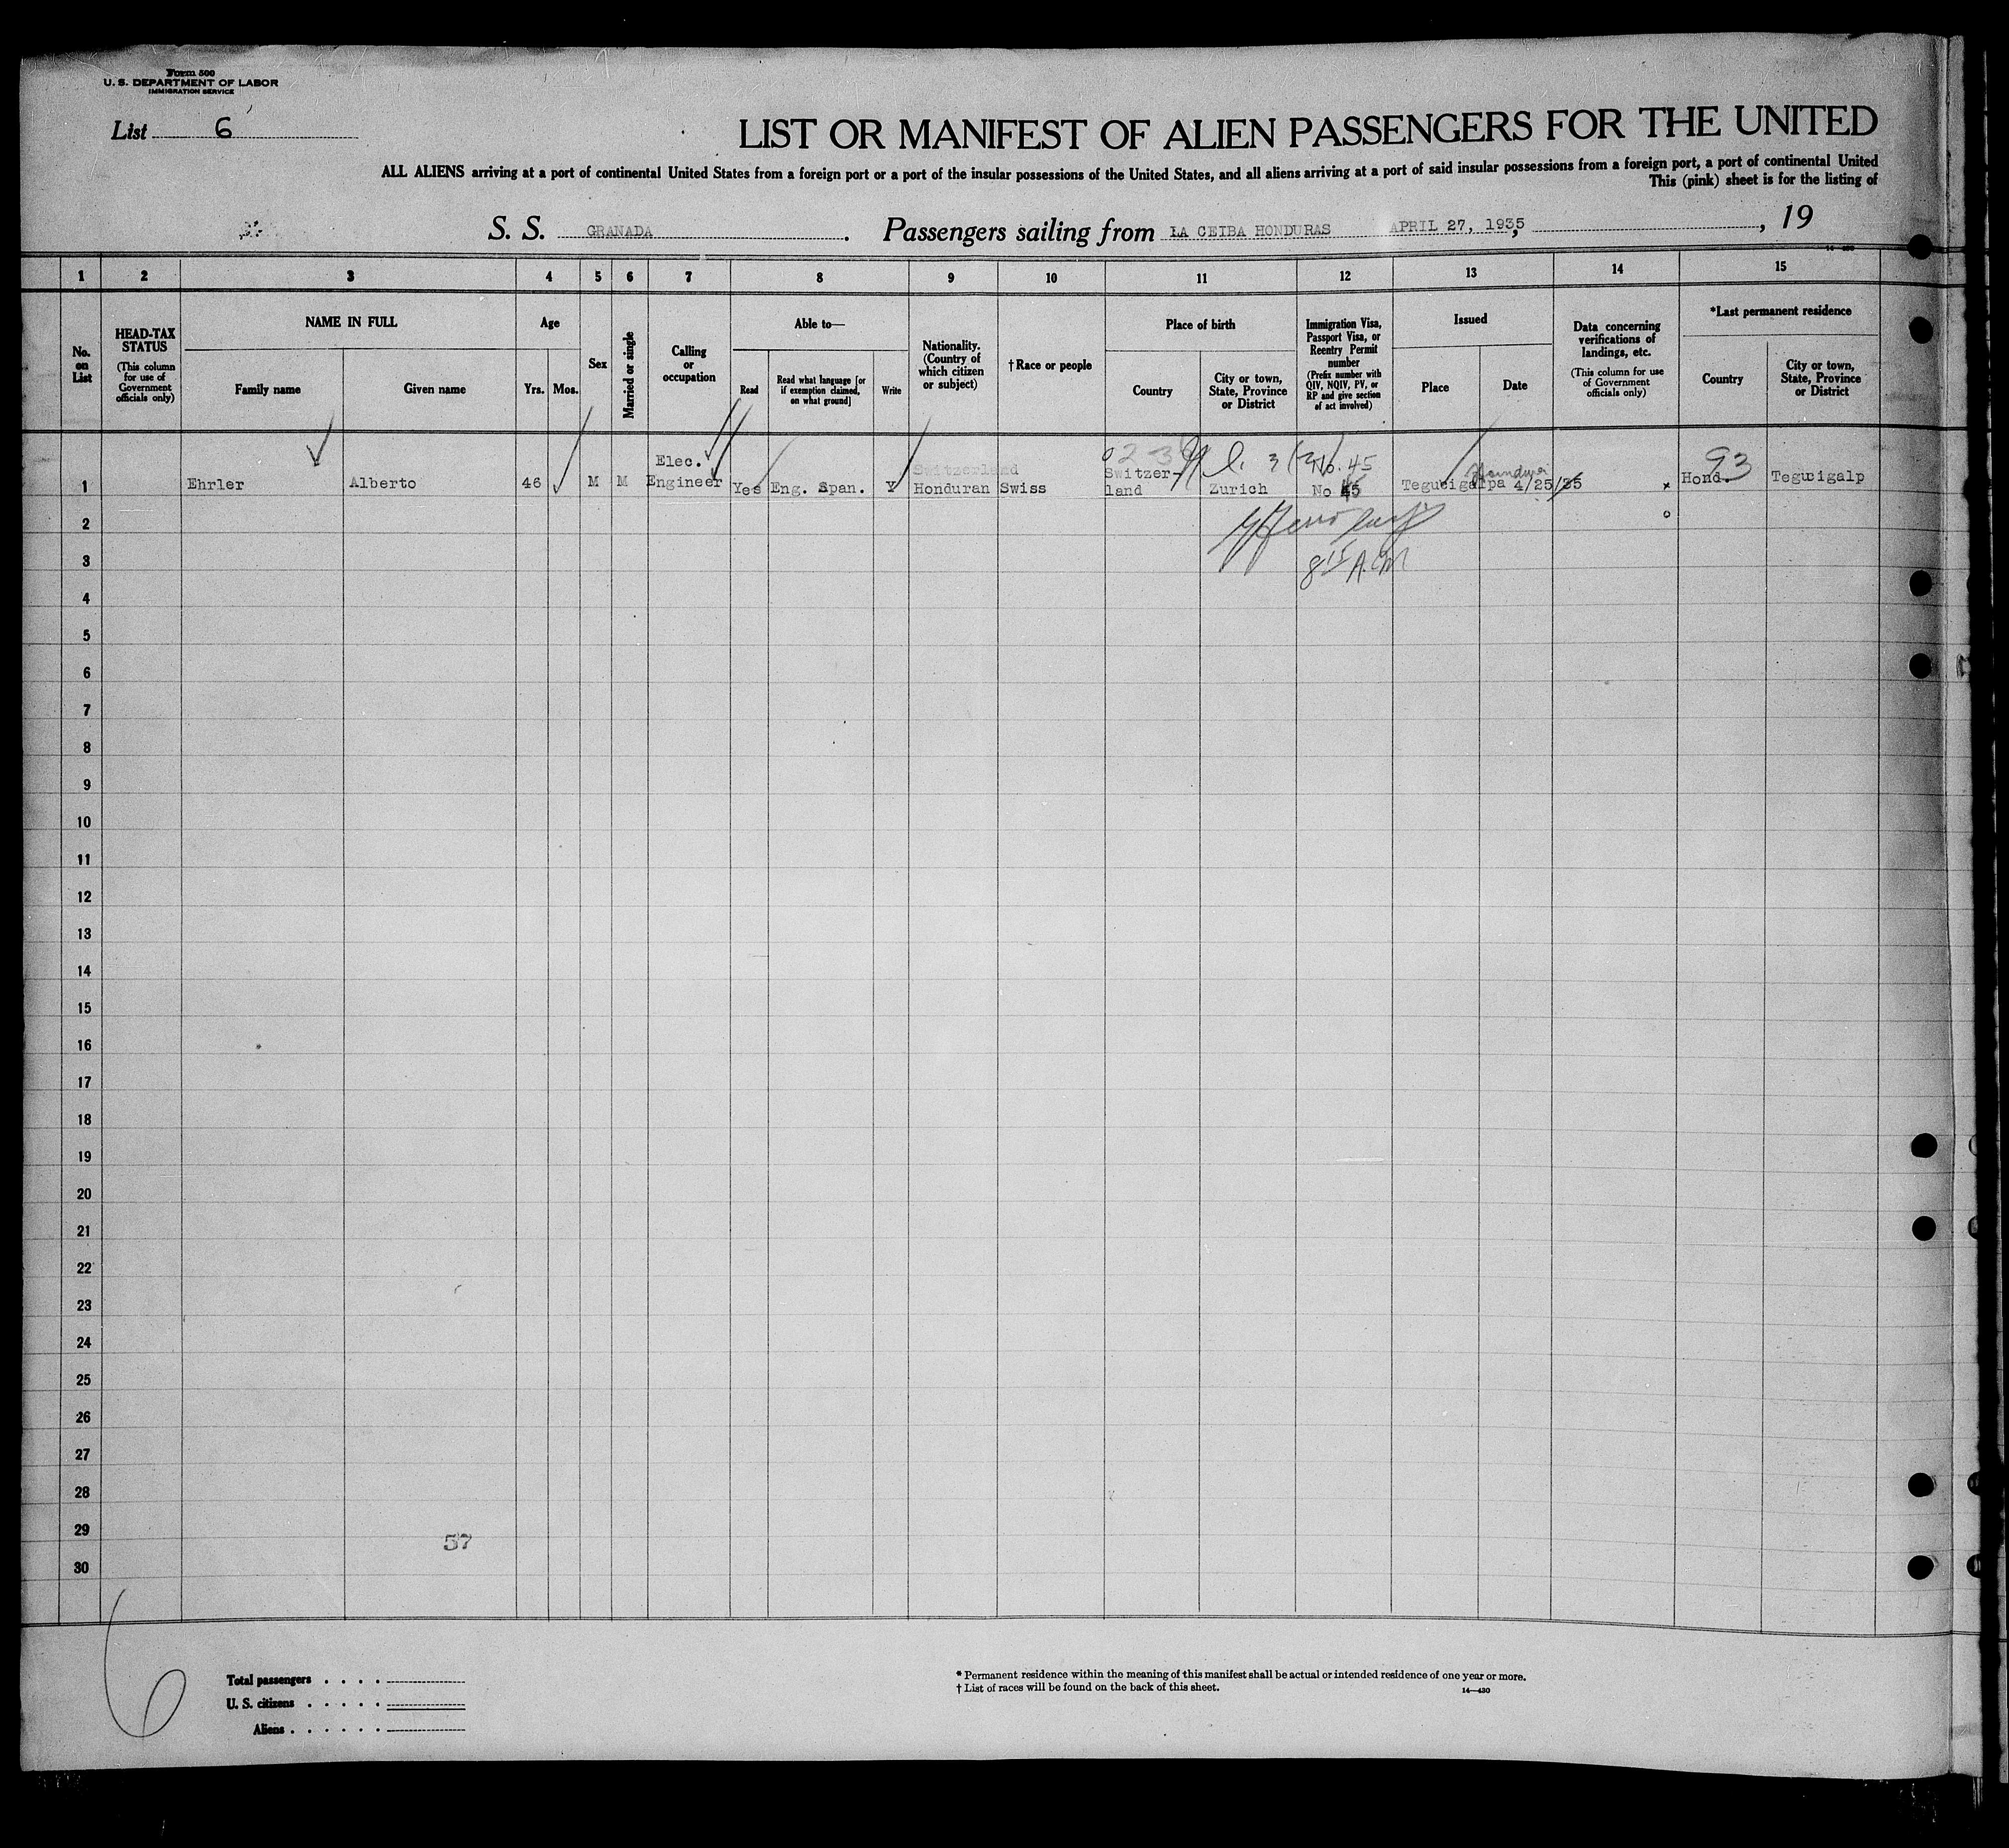 Form 500
U. S. DEPARTMENT OF LABOR
IMMIGRATION SERVICE
List 6
LIST OR MANIFEST OF ALIEN PASSENGERS FOR THE UNITED
ALL ALIENS arriving at a port of continental United States from a foreign port or a port of the insular possessions of the United States, and all aliens arriving at a port of said insular possessions from a foreign port, a port of continental United
This (pink) sheet is for the listing of
S. S. GRANADA. Passengers sailing from LA CEIBA HONDURAS APRIL 27, 1935, , 19
14-430
1 2 3 4 5 6 7 8 9 10 11 12 13 14 15
No. on List
HEAD-TAX STATUS
(This column for use of Government officials only)
NAME IN FULL
Family name
Given name
Age
Yrs. Mos.
Sex
Married or single
Calling or occupation
Able to—
Read
Read what language [or if exemption claimed, on what ground]
Write
Nationality. (Country of which citizen or subject)
†Race or people
Place of birth
Country
City or town, State, Province or District
Immigration Visa, Passport Visa, or Reentry Permit number
(Prefix number with QIV, NQIV, PV, or RP and give section of act involved)
Issued
Place
Date
Data concerning verifications of landings, etc.
(This column for use of Government officials only)
*Last permanent residence
Country
City or town, State, Province or District
Elec. Switzerland Switzer- No. 45 93
1 Ehrler Alberto 46 M M Engineer Yes Eng. Span. Y Honduran Swiss land Zurich No 45 Tegucigalpa 4/25/35 x Hond. Tegucigalp
2 o
3 8 15 A.M
4
5
6
7
8
9
10
11
12
13
14
15
16
17
18
19
20
21
22
23
24
25
26
27
28
29
57
30
6
Total passengers . . . .
U. S. citizens . . . . .
Aliens . . . . . .
* Permanent residence within the meaning of this manifest shall be actual or intended residence of one year or more.
† List of races will be found on the back of this sheet.
14—430